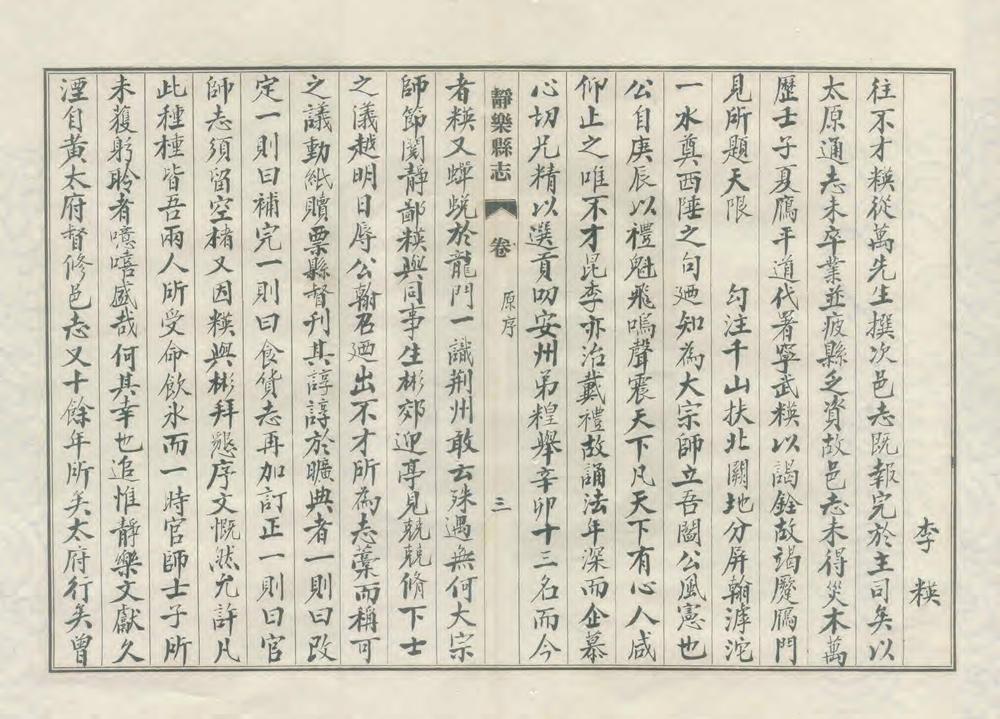 李䊏
往不才䊏從萬先生撰次邑志既報完於主司矣以
太原通志未卒業並疲縣乏資故邑志未得災木萬
歷壬子夏鴈平道代署寧武䊏以謁銓故竭蹷鴈門
見所題天限 勾注千山扶北闕地分屏翰滹沱
一水奠西陲之句廼知為大宗師立吾闔公風憲也
公自庚辰以禮魁飛鳴聲震天下凡天下有心人咸
仰止之唯不才昆季亦治戴禮故誦法年深而企慕
心切尤精以選貢叨安州弟𥹥舉辛卯十三名而今
靜樂縣志 卷 原序 三
者䊏又蟬蛻於龍門一識荆州敢云殊遇無何大宗
師節閱靜鄙䊏與同事生彬郊迎亭見兢兢脩下士
之儀越明日辱公翰召廼出不才所為志藁而稱可
之議動紙贖票縣督刊其諄諄於曠典者一則曰改
定一則曰補完一則曰食貨志再加訂正一則曰官
師志須留空楮又因䊏與彬拜懇序文慨然允許凡
此種種皆吾兩人所受命飲氷而一時官師士子所
未獲躬聆者噫嘻盛哉何其幸也追惟靜樂文獻久
湮自黃太府督修邑志又十餘年所矣太府行矣曾